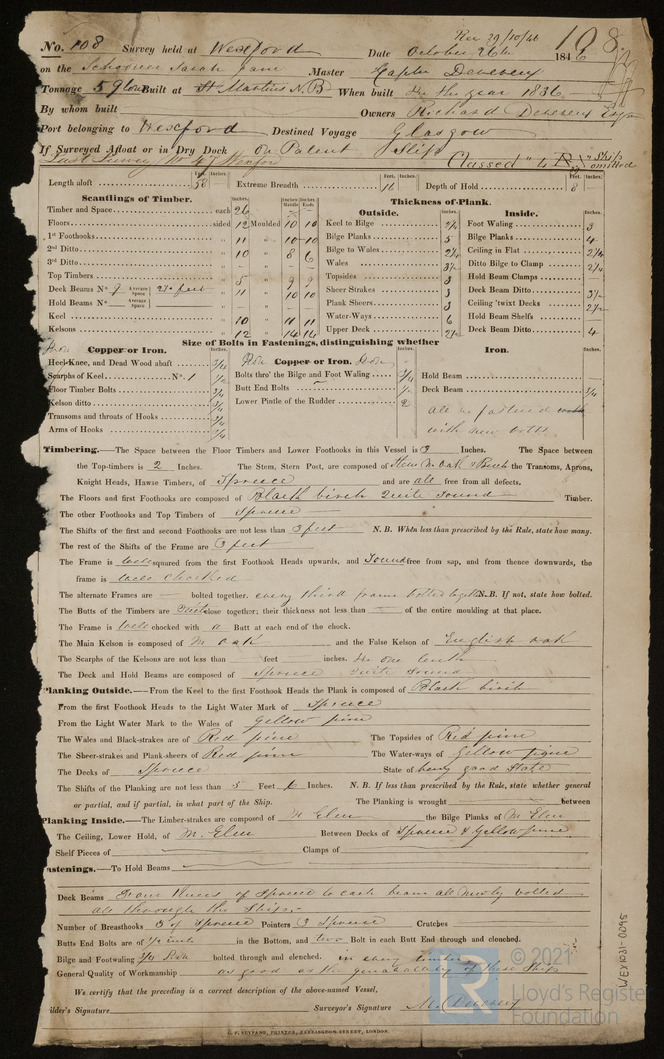 Rec 29/10/46
108
No. 108 Survey held at Wexford Date October 26th 1846
on the Schooner Sarah Jane Master Captn Devereux
Tonnage 59 Built at St Martins N.B When built In the year 1836
By whom built Owners Richard Devereux Esqr
Port belonging to Wexford Destined Voyage Glasgow
If Surveyed Afloat or in Dry Dock On Patent Slip
Last Survey No 47 Wexford Classed
omitted
Length aloft 58 Extreme Breadth 16 Depth of Hold 8
Feet. Inches. Feet. Inches. Feet. Inches.
Scantlings of Timber. Thickness of Plank.
Inches. Inches. Middle Inches. Ends Outside. Inches. Inside. Inches.
Timber and Space each 26 Keel to Bilge 2½ Foot Waling 3
Floors sided 12 Moulded 10 10 Bilge Planks 5 Bilge Planks 4
1st Foothooks " 11 " 10 10 Bilge to Wales 2¼ Ceiling in Flat 2¼
2nd Ditto " 10 " 8 6 Wales 3½ Ditto Bilge to Clamp 2¼
3rd Ditto " " Topsides 3 Hold Beam Clamps
Top Timbers " 5 " Sheer Strakes 3 Deck Beam Ditto 3½
Deck Beams No 9 Average Space 2½ feet " 11 " 10 10 Plank Sheers 3 Ceiling 'twixt Decks 2½
Hold Beams No Average Space " " Water-Ways 6 Hold Beam Shelfs
Keel " 10 " 11 11 Upper Deck 2½ Deck Beam Ditto 4
Kelsons " 12 " 14 14
Size of Bolts in Fastenings, distinguishing whether
Copper or Iron. Inches. Copper or Iron. Inches. Iron. Inches.
Heel-Knee, and Dead Wood abaft 3/4 Bolts thro' the Bilge and Foot Waling 3/4 Hold Beam
Scarphs of Keel No. 1 1/2 Butt End Bolts 1/2 Deck Beam 3/4
Floor Timber Bolts 3/4 Lower Pintle of the Rudder 2
Kelson ditto 3/4 all is fastened
Transoms and throats of Hooks 3/4 with new bolts
Arms of Hooks 3/4
Timbering.—The Space between the Floor Timbers and Lower Foothooks in this Vessel is 3 Inches. The Space between
the Top-timbers is 2 Inches. The Stem, Stern Post, are composed of M. oak & Birch the Transoms, Aprons,
Knight Heads, Hawse Timbers, of Spruce and are all free from all defects.
The Floors and first Foothooks are composed of Black birch Quite Sound Timber.
The other Foothooks and Top Timbers of Spruce
The Shifts of the first and second Foothooks are not less than 3 feet N. B. When less than prescribed by the Rule, state how many.
The rest of the Shifts of the Frame are 3 feet
The Frame is well squared from the first Foothook Heads upwards, and Sound free from sap, and from thence downwards, the
frame is well chocked
The alternate Frames are — bolted together. every third frame bolted together N.B. If not, state how bolted.
The Butts of the Timbers are Quite close together; their thickness not less than — of the entire moulding at that place.
The Frame is well chocked with a Butt at each end of the chock.
The Main Kelson is composed of M oak and the False Kelson of English oak
The Scarphs of the Kelsons are not less than feet inches. In one lenth
The Deck and Hold Beams are composed of Spruce Quite Sound
Planking Outside.—From the Keel to the first Foothook Heads the Plank is composed of Black birch
From the first Foothook Heads to the Light Water Mark of Spruce
From the Light Water Mark to the Wales of Yellow pine
The Wales and Black-strakes are of Red pine The Topsides of Red pine
The Sheer-strakes and Plank-sheers of Red pine The Water-ways of Yellow pigne
The Decks of Spruce State of very good State
The Shifts of the Planking are not less than 5 Feet 6 Inches. N. B. If less than prescribed by the Rule, state whether general
or partial, and if partial, in what part of the Ship. The Planking is wrought between
Planking Inside.—The Limber-strakes are composed of M Elm the Bilge Planks of M Elm
The Ceiling, Lower Hold, of M. Elm Between Decks of Spruce & Yellow pine
Shelf Pieces of Clamps of
astenings.—To Hold Beams
Deck Beams Knees of Spruce to each beam all newly bolted
all through the Ship.
Number of Breasthooks 3 of Spruce Pointers 3 Spruce Crutches
Butts End Bolts are of 1/2 inch in the Bottom, and two Bolt in each Butt End through and clenched.
Bilge and Footwaling 3/4 bolted through and clenched. in every timber
General Quality of Workmanship as good as the generality of these Ships
We certify that the preceding is a correct description of the above-named Vessel,
ilder's Signature Surveyor's Signature M. Devereux
C. F. SEYFANG, PRINTER, FARRINGDON-STREET, LONDON.
WEX1031-0095
LR © 2021
Lloyd's Register
Foundation